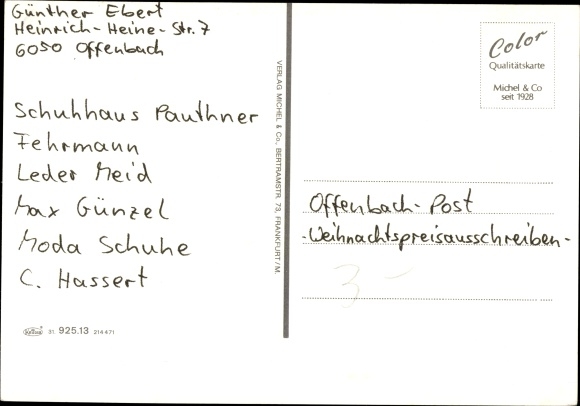 Günther Ebert
Heinrich-Heine-Str. 7
6050 Offenbach
Schuhhaus Pauthner
Fehrmann
Leder Meid
Max Günzel
Moda Schuhe
C. Hassert
31. 925.13 214471
VERLAG MICHEL & Co., BERTRAMSTR. 73, FRANKFURT/M.
Color
Qualitätskarte
Michel & Co
seit 1928
Offenbach-Post
-Weihnachtspreisausschreiben-
3-